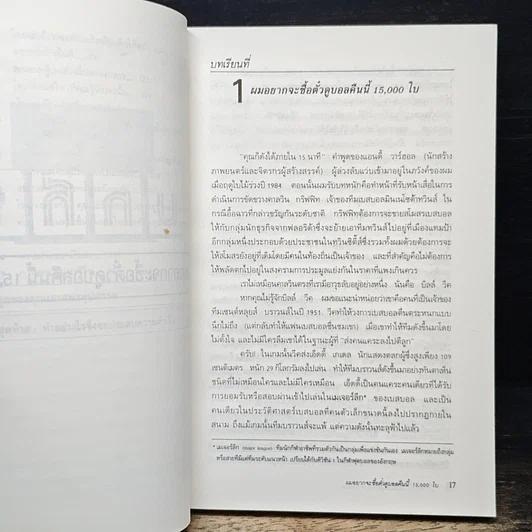 บทเรียนที่
1 ผมอยากจะซื้อตั๋วดูบอลคืนนี้ 15,000 ใบ
"คุณก็ดังได้ภายใน 15 นาที" คำพูดของแอนดี้ วาร์ฮอล (นักสร้าง
ภาพยนตร์และจิตรกรผู้สร้างสรรค์) ผู้ล่วงลับแว่บเข้ามาอยู่ในภวังค์ของผม
เมื่อฤดูใบไม้ร่วงปี 1984 ตอนนั้นผมรับบทหนักคือทำหน้าที่รับหน้าเสื่อในการ
ดำเนินการขัดขวางคาลวิน กริฟฟิท เจ้าของทีมเบสบอลมินเนโซต้าทวินส์ ใน
กรณีอื้อฉาวที่กล่าวขวัญกันระดับชาติ กริฟฟิทต้องการจะขายสโมสรเบสบอล
ให้กับกลุ่มนักธุรกิจจากฟลอริด้าซึ่งจะย้ายเอาทีมทวินส์ไปอยู่ที่เมืองแทมป้า
อีกกลุ่มหนึ่งประกอบด้วยประชาชนในทวินซิตี้ส์ซึ่งรวมทั้งผมด้วยต้องการจะ
ให้สโมสรยังอยู่ที่เดิมโดยมีคนในท้องถิ่นเป็นเจ้าของ และที่สำคัญคือไม่ต้องการ
ให้พลัดตกไปอยู่ในสงครามการประมูลแย่งกันในราคาที่แพงเกินควร
เราไม่เหมือนคาลวินตรงที่เรามีอาวุธลับอยู่อย่างหนึ่ง นั่นคือ บิลล์ วีค
หากคุณไม่รู้จักบิลล์ วีค ผมขอแนะนำหน่อยว่าเขาคือคนที่เป็นเจ้าของ
ทีมเซนต์หลุยส์ บราวนส์ในปี 1951 วีคทำให้วงการเบสบอลตื่นตระหนกแบบ
นึกไม่ถึง (แต่กลับทำให้แฟนเบสบอลชื่นชมเขา) เมื่อเขาทำให้ทีมดังขึ้นมาโดย
ไม่ตั้งใจ และไม่มีใครลืมเขาได้ในฐานะผู้ที่ "ส่งคนแคระลงไปตีลูก"
ครับ! ในเกมนั้นวีคส่งเอ็ดดี้ เกเดล นักแสดงตลกผู้ซึ่งสูงเพียง 109
เซนติเมตร หนัก 29 กิโลกรัมลงไปเล่น ทำให้ทีมบราวนส์ดังขึ้นมาอย่างทันตาเห็น
ชนิดที่ไม่เหมือนใครและไม่มีใครเหมือน เอ็ดดี้เป็นคนแคระคนเดียวที่ได้รับ
การยอมรับหรือสอบผ่านเข้าไปเล่นในเมเจอร์ลีก* ของเบสบอล และเป็น
คนเดียวในประวัติศาสตร์เบสบอลที่คนตัวเล็กขนาดนี้ลงไปปรากฏกายใน
สนาม ถึงแม้เกมนั้นทีมบราวนส์จะแพ้ แต่ความดังนั้นทะลุฟ้าไปแล้ว
* เมเจอร์ลีก (major league) : ทีมนักกีฬาอาชีพที่รวมตัวกันเป็นกลุ่มเพื่อแข่งขันกันเอง เมเจอร์ลีกหมายถึงกลุ่ม
หรือสายที่มีแต่ทีมระดับแนวหน้า เปรียบได้กับดิวิชั่น 1 ในกีฬาฟุตบอลของอังกฤษ
ผมอยากจะซื้อตั๋วดูบอลคืนนี้ 15,000 ใบ 17